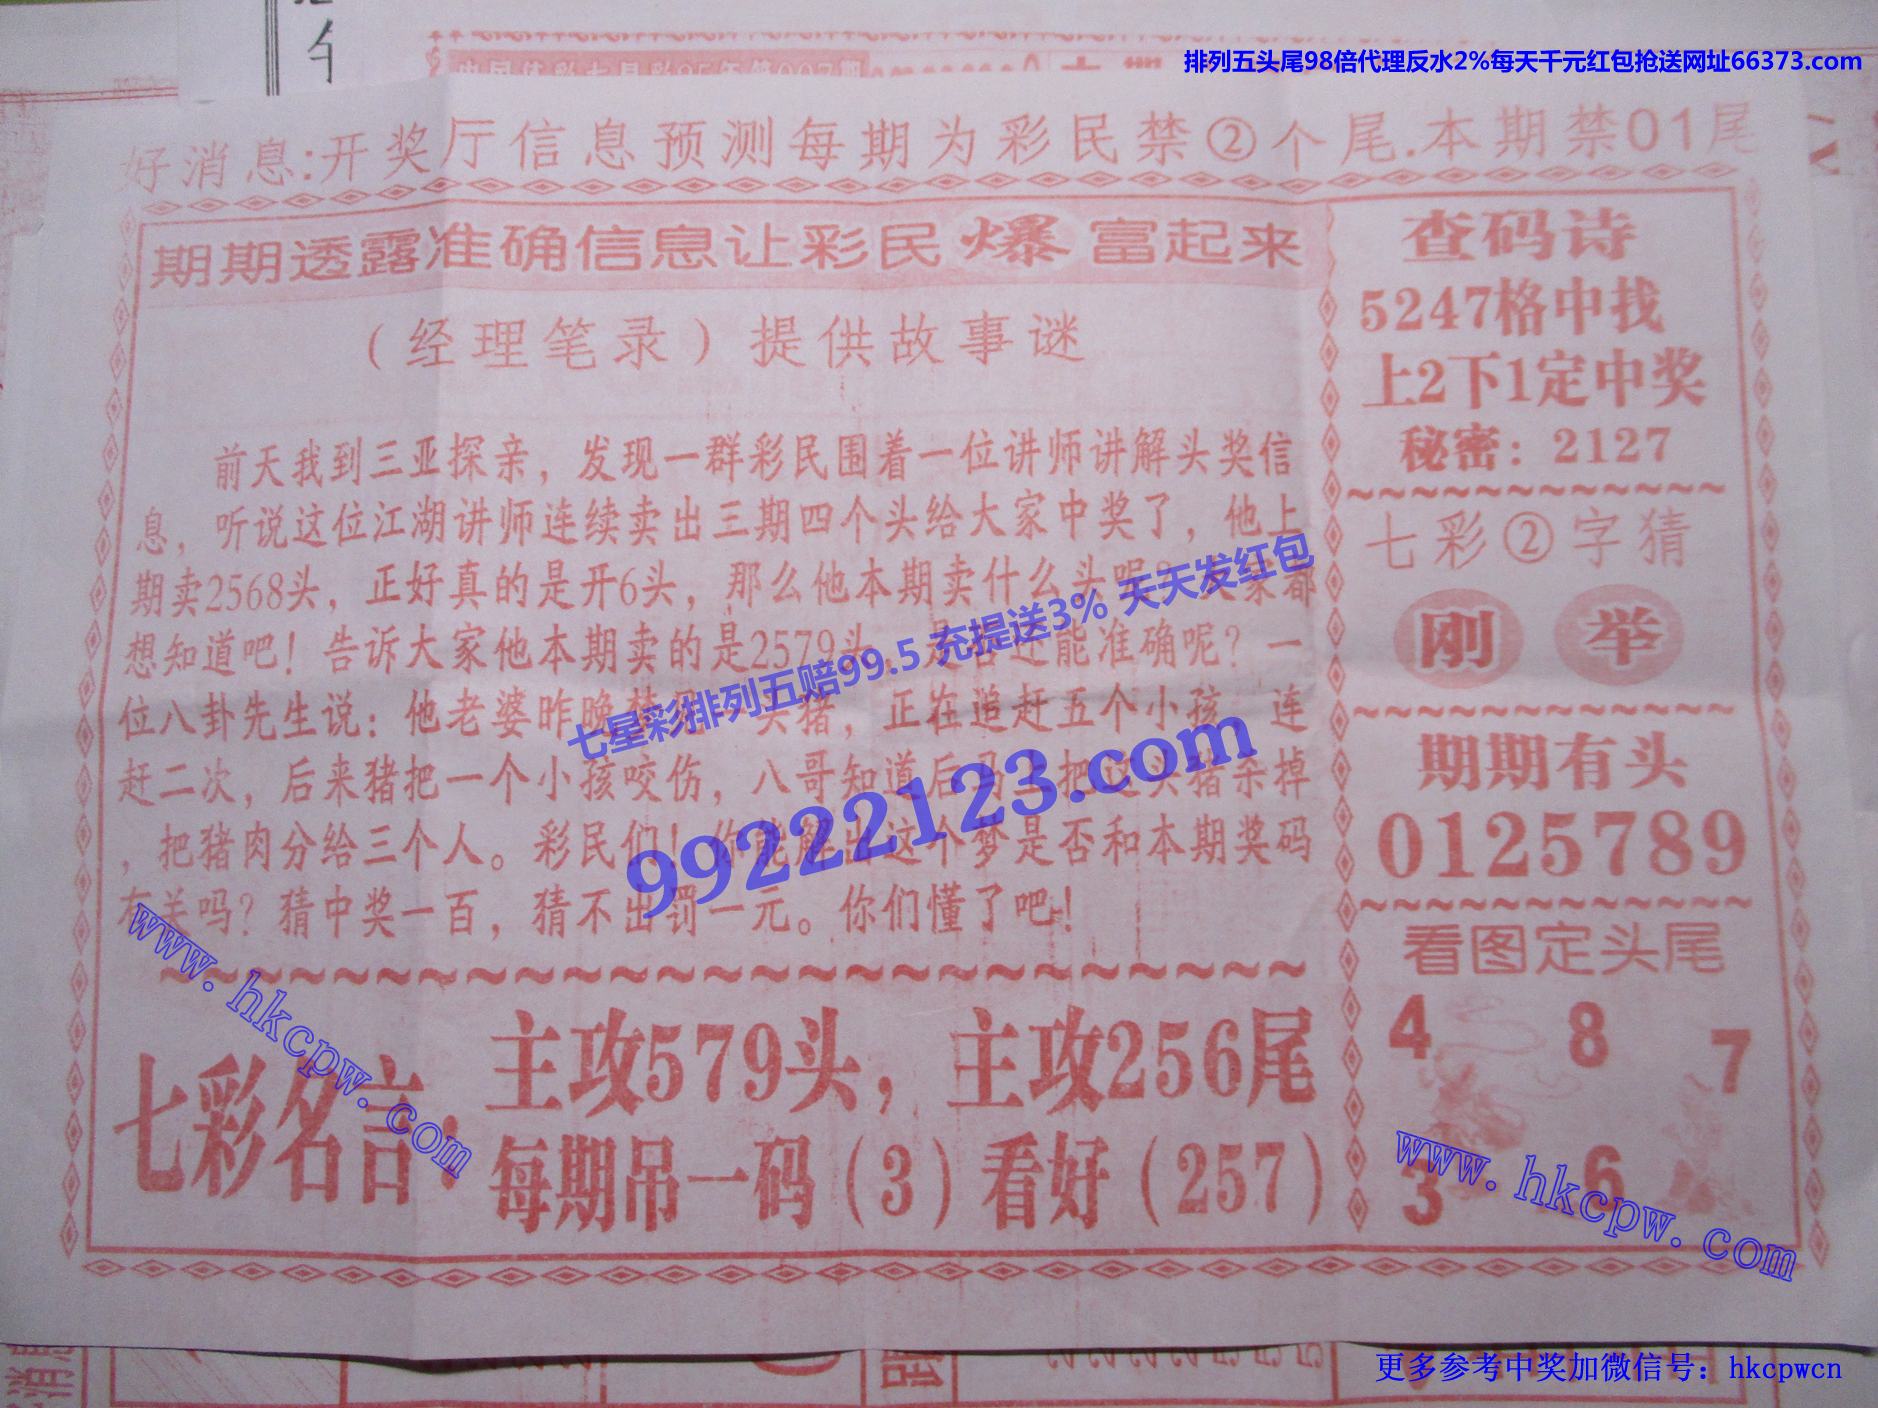 排列五头尾98倍代理反水2%每天千元红包抢送网址66373.com
好消息:开奖厅信息预测每期为彩民禁②个尾.本期禁01尾
期期透露准确信息让彩民爆富起来
(经理笔录)提供故事谜
前天我到三亚探亲，发现一群彩民围着一位讲师讲解头奖信
息，听说这位江湖讲师连续卖出三期四个头给大家中奖了，他上
期卖2568头，正好真的是开6头，那么他本期卖什么头呢？大家都
想知道吧！告诉大家他本期卖的是2579头，是否还能准确呢？一
位八卦先生说：他老婆昨晚梦见一头猪，正在追赶五个小孩，连
赶二次，后来猪把一个小孩咬伤，八哥知道后马上把这头猪杀掉
，把猪肉分给三个人。彩民们！你能解出这个梦是否和本期奖码
有关吗？猜中奖一百，猜不出罚一元。你们懂了吧！
七彩名言:
主攻579头，主攻256尾
每期吊一码(3)看好(257)
查码诗
5247格中找
上2下1定中奖
秘密：2127
七彩②字猜
刚 举
期期有头
0125789
看图定头尾
4 8 7
3 6
七星彩排列五赔99.5 充提送3% 天天发红包
99222123.com
www.hkcpw.com
www.hkcpw.com
更多参考中奖加微信号：hkcpwcn